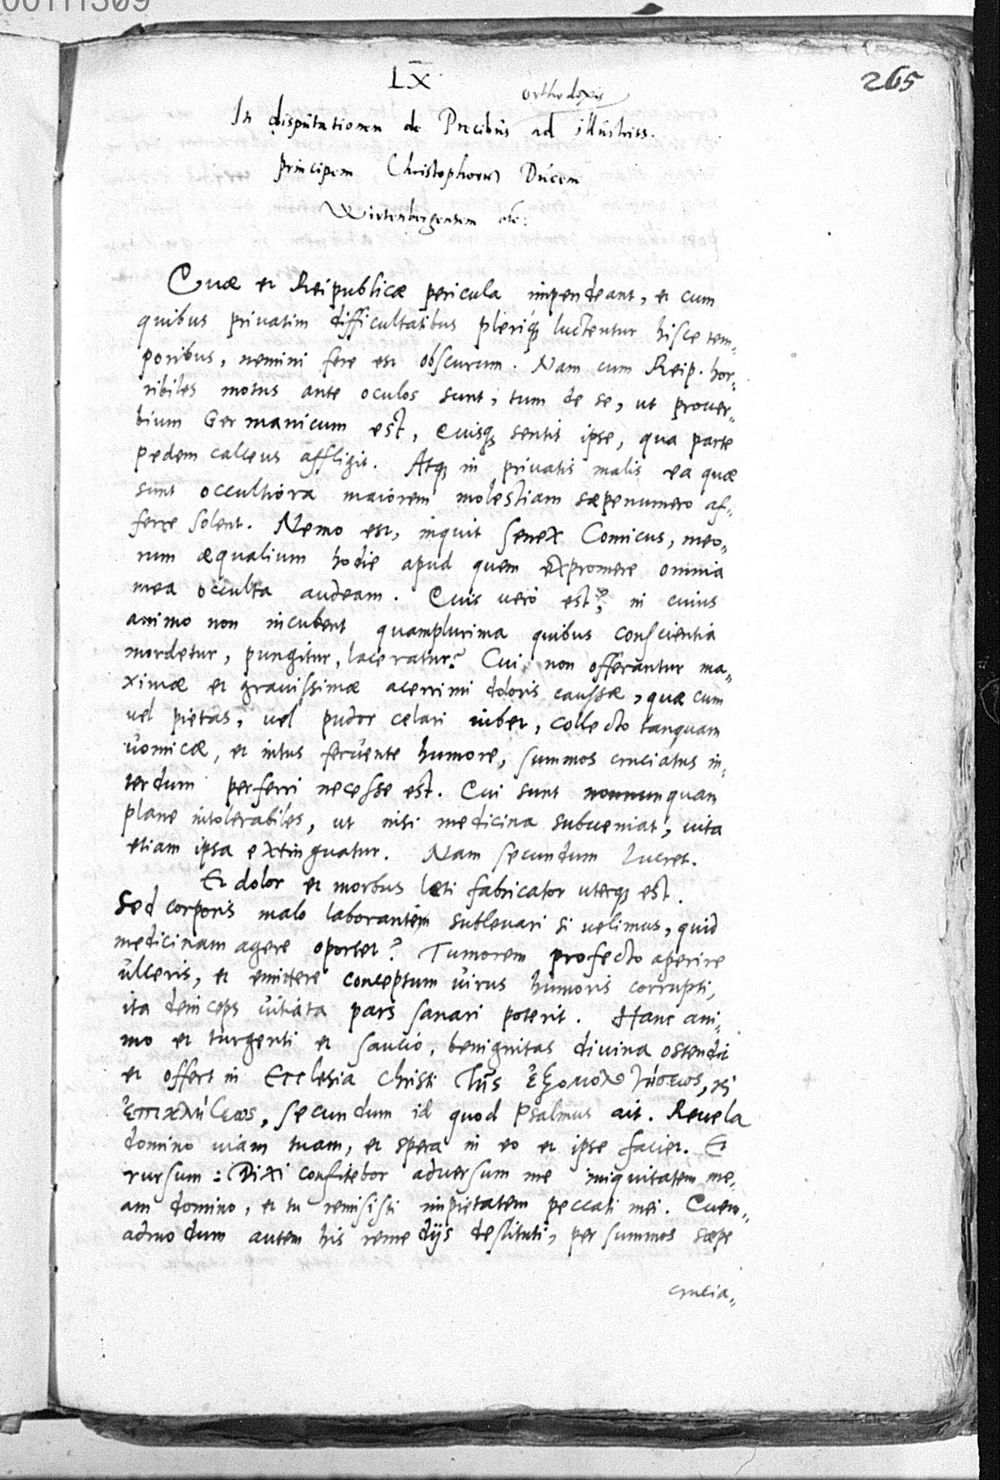 00111309
265
LX
orthodoxis
In disputationem de Precibus ad illustriss.
principem Christophorum Ducem
Wirtenbergensem etc.
Quæ et Reipublicæ pericula impendeant, et cum
quibus privatim difficultatibus pleriq; luctentur hisce tem-
poribus, nemini fere est obscurum. Nam cum Reip. hor-
ribiles motus ante oculos sunt; tum de se, ut prover-
bium Germanicum est, Quisq; sentit ipse, qua parte
pedem calceus affligit. Atq; in privatis malis ea quæ
sunt occultiora maiorem molestiam sæpenumero af-
ferre solent. Nemo est, inquit Senex Comicus, meo-
rum æqualium hodie apud quem expromere omnia
mea occulta audeam. Quis vero est? in cuius
animo non incubent quamplurima quibus conscientia
mordetur, pungitur, laceratur? Cui non offerantur ma-
ximæ et gravissimæ acerrimi doloris caussæ, quæ cum
vel pietas, vel pudor celari iubet, collecto tanquam
vomicæ, et intus fervente humore, summos cruciatus in-
terdum perferri necesse est. Qui sunt nonnunquam
plane intolerabiles, ut nisi medicina subveniat, vita
etiam ipsa extinguatur. Nam secundum Lucret.
Et dolor et morbus læti fabricator uterq; est.
Sed corporis malo laborantem sublevari si velimus, quid
medicinam agere oportet? Tumorem profecto aperire
ulceris, et emittere conceptum virus humoris corrupti,
ita deinceps vitiata pars sanari poterit. Hanc ani-
mo et turgenti et saucio, benignitas divina ostendit
et offert in Ecclesia Christi τῆς ἐξομολογήσεως, καὶ
ἐπικλήσεως, secundum id quod Psalmus ait. Revela
domino viam tuam, et spera in eo et ipse faciet. Et
rursum: Dixi confitebor adversum me iniquitatem me-
am domino, et tu remisisti impietatem peccati mei. Quem-
admodum autem his remedijs destituti, per summos sæpe
crucia-